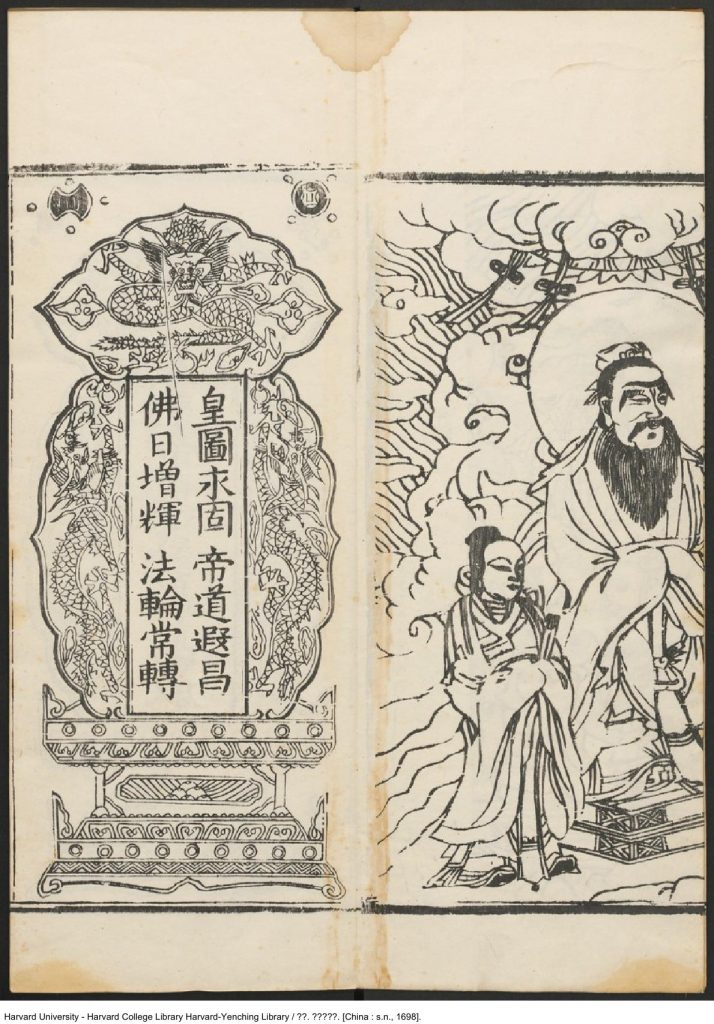 皇圖永固 帝道遐昌
佛日增輝 法輪常轉
Harvard University - Harvard College Library Harvard-Yenching Library / ??. ?????. [China : s.n., 1698].